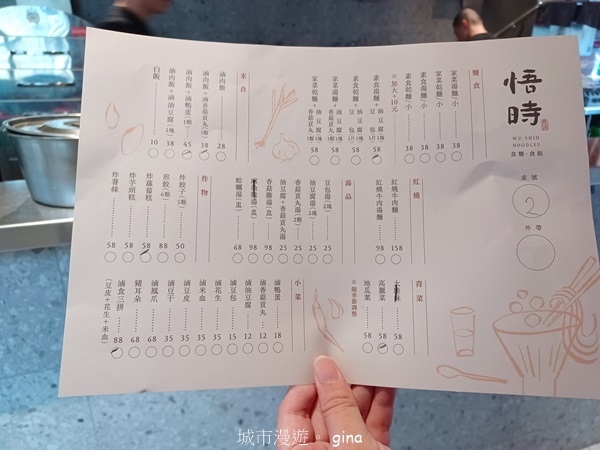 悟時
WU-SHIH
NOODLES
食麵·食飯
桌號
2
外帶
麵食
家菜湯麵/小 38
家菜乾麵/小 38
素食湯麵/小 38
素食乾麵/小 38
※加大+10元
素食湯麵+油豆腐1片 豆包1片 58
家菜湯麵+油豆腐1片 58
家菜乾麵+滷香菇貢丸2顆 58
米食
滷肉飯 28
滷肉飯+滷香菇貢丸(1顆) 38
滷肉飯+滷鴨蛋(1顆) 45
滷肉飯+滷油豆腐(1塊) 38
白飯 10
紅燒
紅燒牛肉麵 158
紅燒牛肉湯麵 98
湯品
豆包湯(2塊) 25
油豆腐湯(2塊) 25
香菇貢丸湯(2顆) 25
油豆腐+香菇貢丸湯 25
香菇雞湯(盅) 98
98
蛤蠣湯(盅) 68
炸物
炸餃子(5顆) 50
煎餃(6顆) 88
炸蘿蔔糕 58
炸芋頭糕 58
炸薯條 58
青菜
大陸妹 58
高麗菜 58
地瓜葉 58
※隨季節調整
小菜
滷鴨蛋 18
滷香菇貢丸 12
滷油豆腐 12
滷豆包 15
滷花生 35
滷米血 35
滷豆皮 35
滷豆干 35
滷鳳爪 68
豬耳朵 68
滷食三拼 88
(豆皮+花生+米血)
城市漫遊。gina